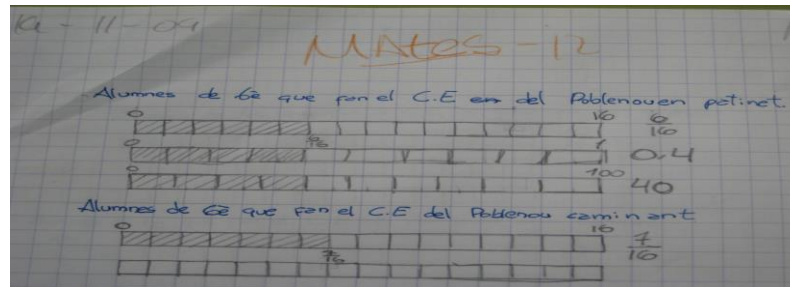 MAtes - 12
Alumnes de 6è que fan el C.E del Poblenou en patinet.
0 16 6/16
6/16
0 1 0.4
0 100 40
Alumnes de 6è que fan el C.E del Poblenou caminant
0 16 7/16
7/16